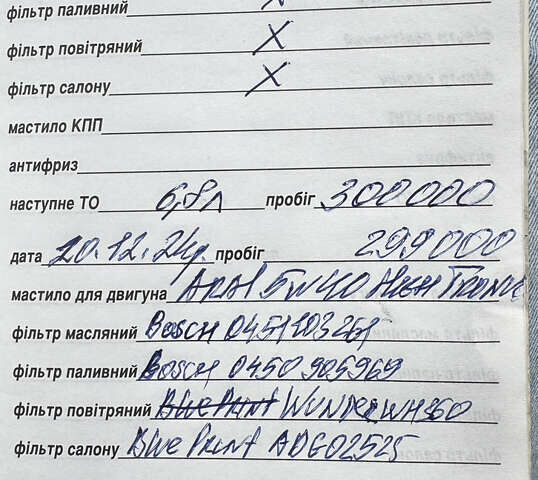 фільтр паливний X
фільтр повітряний X
фільтр салону X
мастило КПП
антифриз
наступне ТО 6,8л пробіг 300000
дата 20.12.24р. пробіг 299000
мастило для двигуна ARAL 5W40 High Tronic
фільтр масляний Bosch 0451103261
фільтр паливний Bosch 0450905969
фільтр повітряний Blue Print Wunder WH260
фільтр салону Blue Print ADG02525